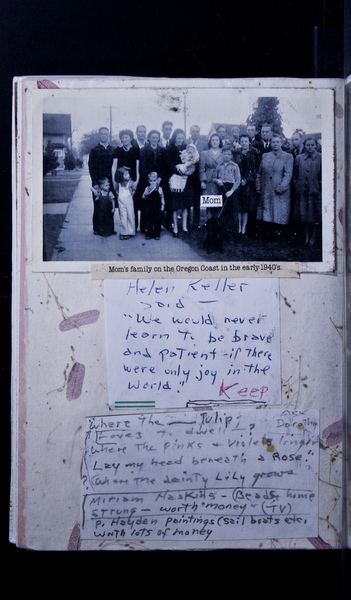 Mom
Mom's family on the Oregon Coast in the early 1940's.
Helen Keller
said —
"We would never
learn to be brave
and patient - if there
were only joy in the
world."
Keep
Where the Tulip
Loves to dwell
Dorothy
Where the pinks + Violets linger
Lay my head beneath a Rose."
(Where the dainty Lily grows
Miriam Haskins - (Beads, home
strung - worth "money" (TV)
P. Hayden paintings (Sail boats etc,
worth lots of money